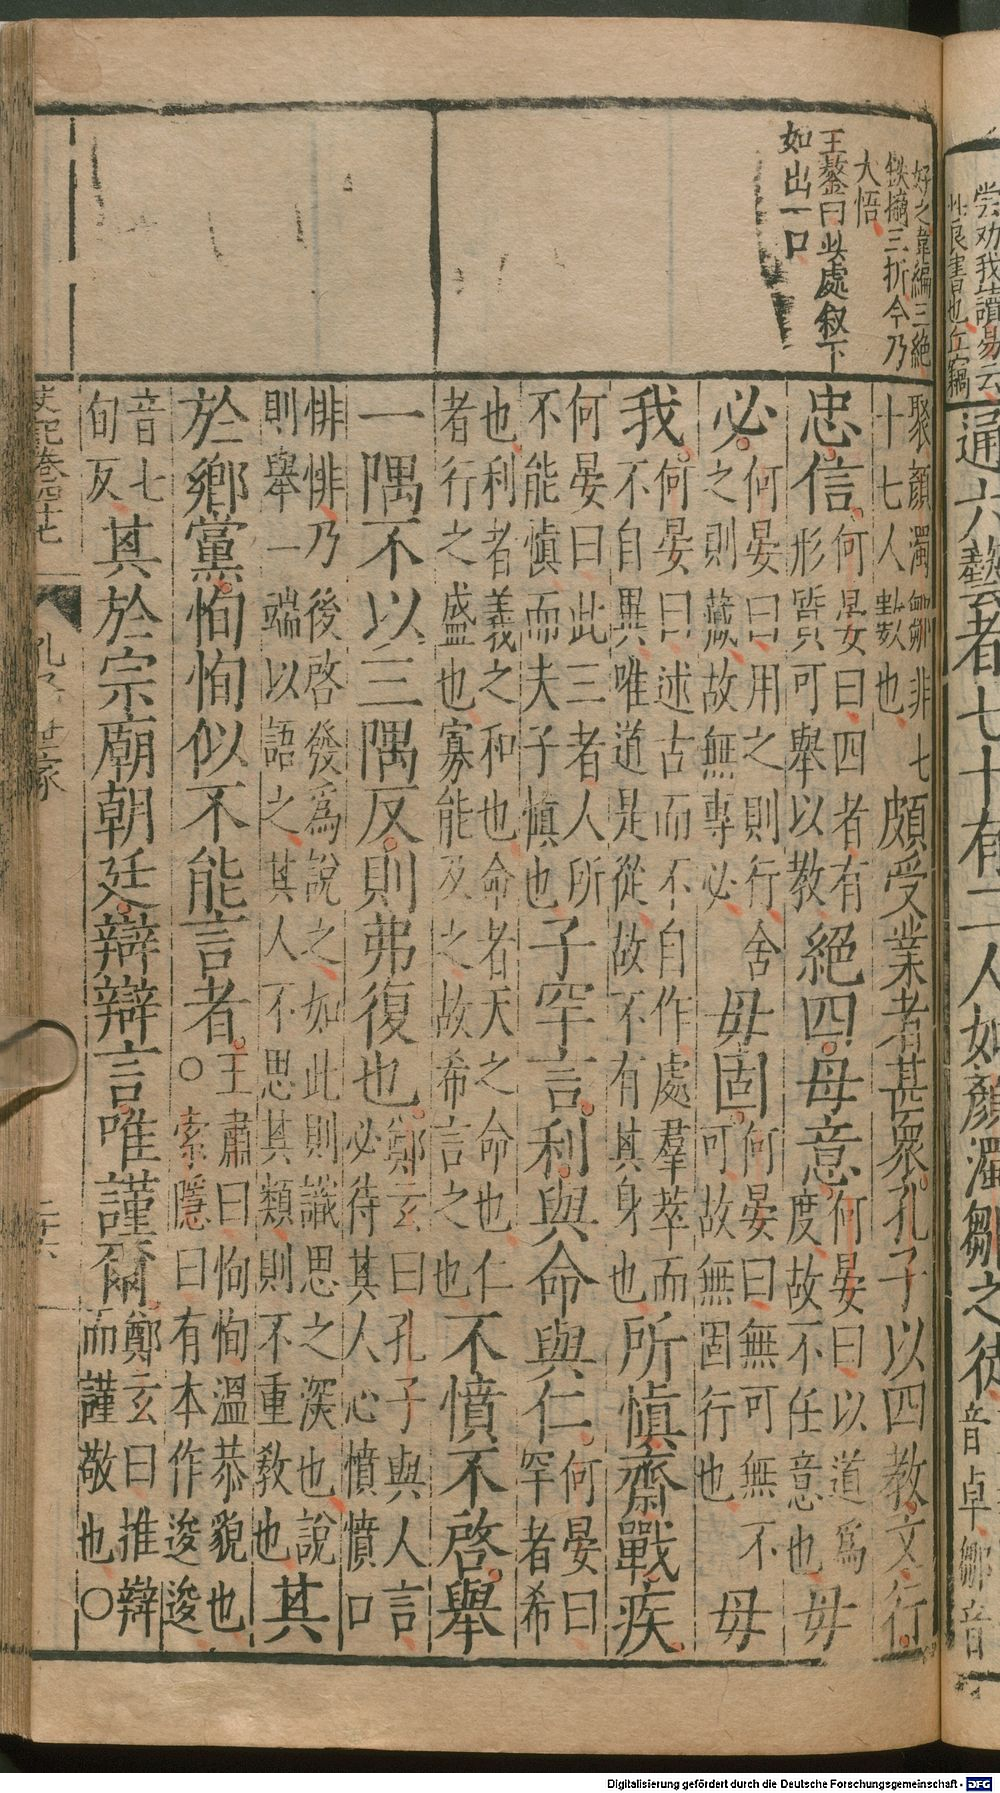 尝劝我讀易云
通六藝者七十有二人如顏濁鄒之徒音卓鄒音
好之韋編三絕
鉄擿三折今乃
大悟
王鏊曰此處叙下
如出一口
聚顏濁鄒非七
十七人數也
頗受業者甚衆孔子以四教文行
忠信何晏曰四者有
形質可舉以教
絕四毋意何晏曰以道爲
度故不任意也
毋
必何晏曰用之則行舍
之則藏故無專必
毋固何晏曰無可無不
可故無固行也
毋
我何晏曰述古而不自作處羣萃而
不自異唯道是從故不有其身也
所慎齋戰疾
何晏曰此三者人所
不能慎而夫子慎也
子罕言利與命與仁何晏曰
罕者希
也利者義之和也命者天之命也仁
者行之盛也寡能及之故希言之也
不憤不啓舉
一隅不以三隅反則弗復也鄭玄曰孔子與人言
必待其人心憤憤口
悱悱乃後啓發爲說之如此則識思之深也說
則舉一端以語之其人不思其類則不重敎也
其
於鄉黨恂恂似不能言者王肅曰恂恂溫恭貌也
○索隱曰有本作逡逡
音七
旬反
其於宗廟朝廷辯辯言唯謹爾鄭玄曰推辯
而謹敬也○
史記卷四十七
孔子世家
二十六
Digitalisierung gefördert durch die Deutsche Forschungsgemeinschaft - DFG